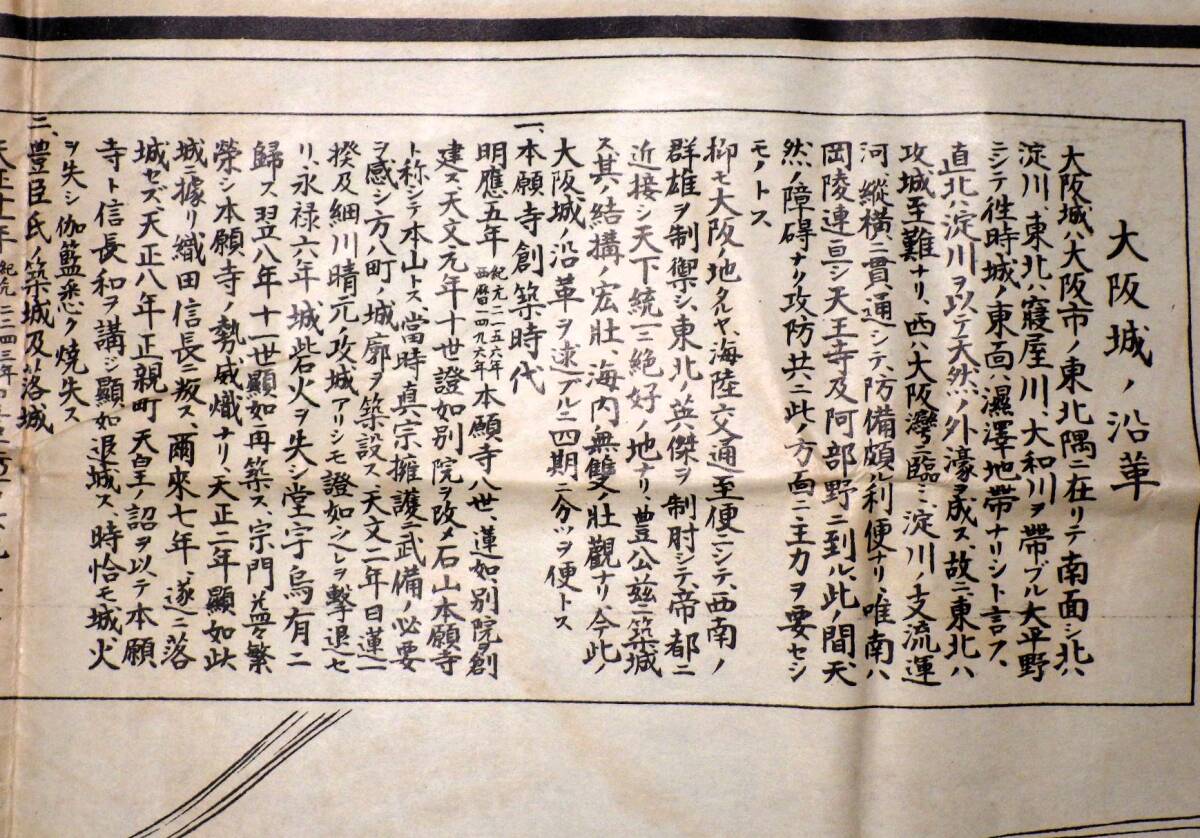 大阪城ノ沿革
大阪城ハ大阪市ノ東北隅ニ在リテ南面シ北ハ
淀川、東北ハ寝屋川、大和川ヲ帶ブル大平野
ニシテ往時城ノ東面ハ濕澤地帶ナリシト言フ、
直北ハ淀川ヲ以テ天然ノ外濠ヲ成ス、故ニ東北ハ
攻城至難ナリ、西ハ大阪灣ニ臨ミ、淀川ノ支流運
河、縱横ニ貫通シテ、防備頗ル利便ナリ、唯南ハ
岡陵連亘シ天王寺及阿部野ニ到ル、此ノ間天
然ノ障碍ナリ攻防共ニ此ノ方面ニ主力ヲ要セシ
モノトス
抑モ大阪ノ地タルヤ、海陸六交通至便ニシテ、西南ノ
群雄ヲ制禦シ、東北ノ英傑ヲ制肘シテ、帝都ニ
近接シ天下統一ニ絶好ノ地ナリ、豊公茲ニ築城
ス其ノ結構ノ宏壯海内無雙ノ壯觀ナリ、今此ノ
大阪城ノ沿革ヲ逑ブルニ四期ニ分ツヲ便トス
一、本願寺創築時代
明應五年 紀元二一五六年 西暦一四九六年 本願寺八世、蓮如、別院ヲ創
建ス天文元年十世證如別院ヲ改メ石山本願寺
ト称シテ本山トス、當時真宗擁護ニ武備ノ必要
ヲ感シ方八町ノ城廓ヲ築設ス、天文二年日蓮一
揆及細川晴元ノ攻城アリシモ證如之レヲ撃退セ
リ、永禄六年城砦火ヲ失シ堂宇烏有ニ
歸ス翌八年十一世顯如再築ス、宗門益々繁
榮シ本願寺ノ勢威熾ナリ、天正二年顯如此
城ニ據リ織田信長ニ叛ス、爾來七年、遂ニ落
城セズ、天正八年正親町天皇ノ詔ヲ以テ本願
寺ト信長和ヲ講ジ顯如退城ス、時恰モ城火
ヲ失シ伽籃悉ク燒失ス
二、豊臣氏ノ築城及ビ落城
天正十一年 紀元二二四三年